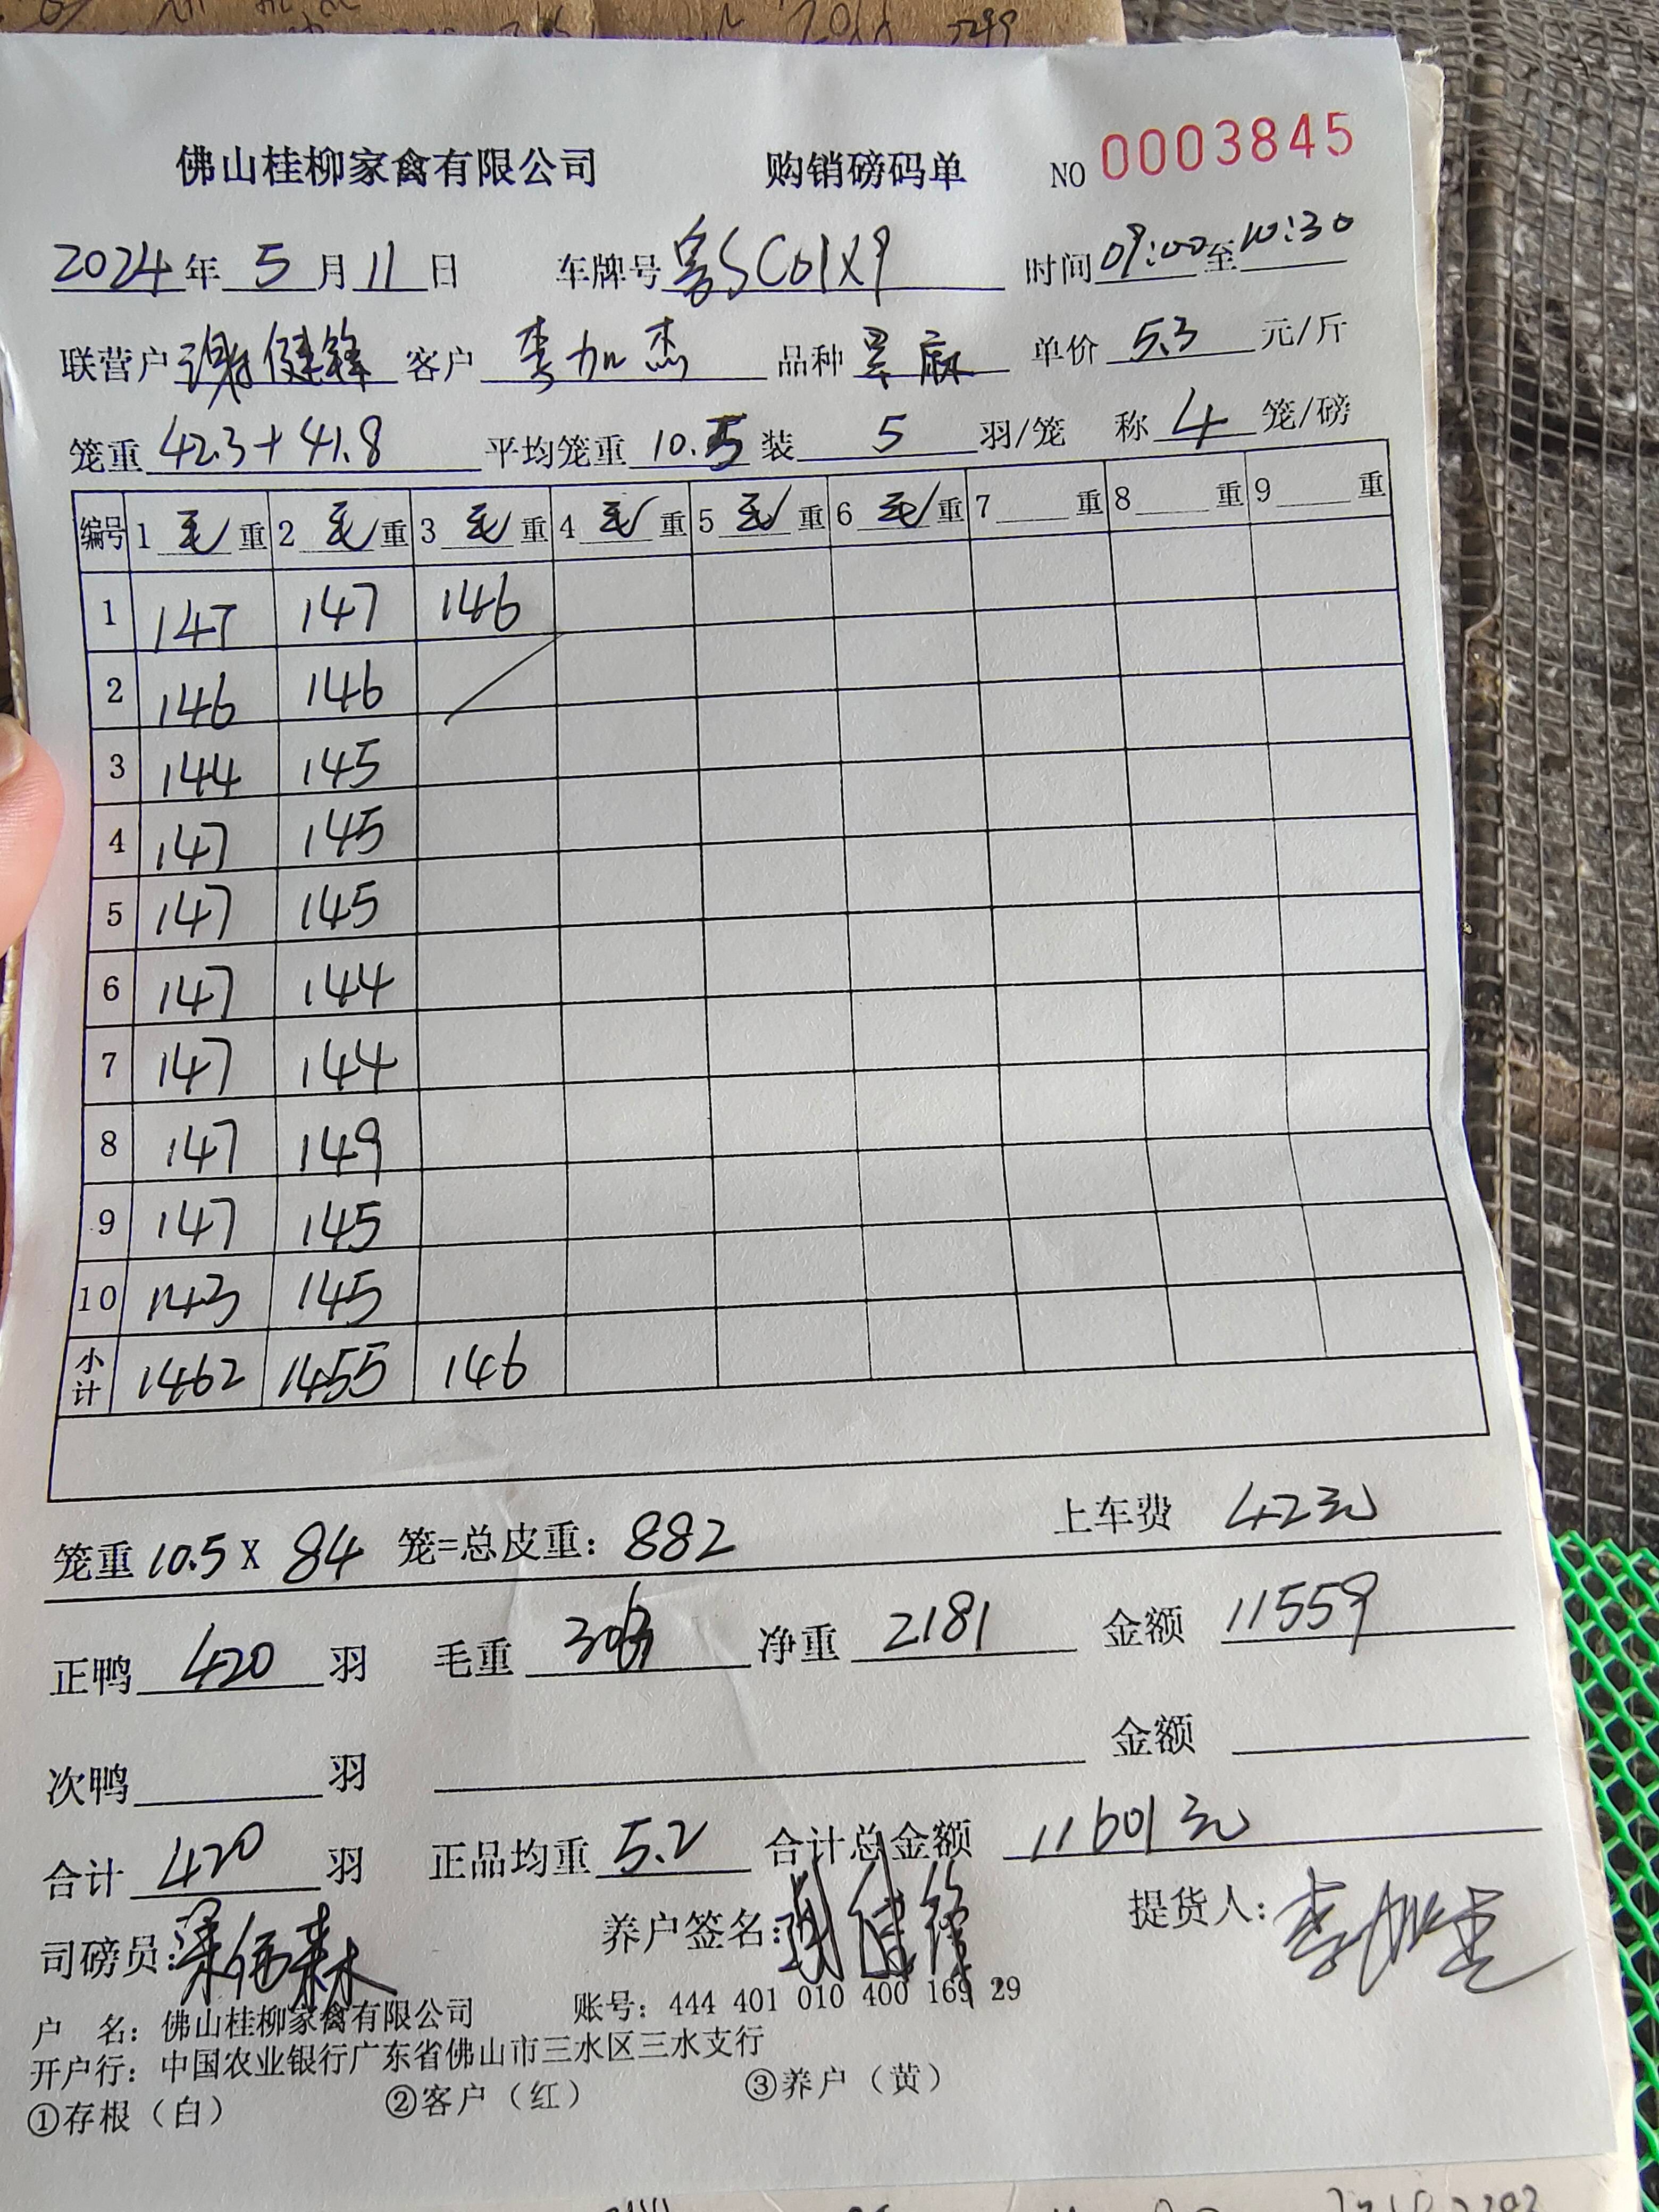 佛山桂柳家禽有限公司 购销磅码单 NO 0003845
2024年5月11日 车牌号粤SC01X9 时间09:00至10:30
联营户谢健锋 客户李加杰 品种 麻 单价5.3元/斤
笼重42.3+41.8 平均笼重10.5装5羽/笼 称4笼/磅
编号 1毛重 2毛重 3毛重 4毛重 5毛重 6毛重 7重 8重 9重
1 147 147 146
2 146 146
3 144 145
4 147 145
5 147 145
6 147 144
7 147 144
8 147 149
9 147 145
10 143 145
小计 1462 1455 146
笼重10.5X84笼=总皮重:882 上车费42元
正鸭420羽 毛重3063 净重2181 金额11559
次鸭 羽 金额
合计420羽 正品均重5.2 合计总金额11601元
司磅员: 养户签名:谢健锋 提货人:李加杰
户 名:佛山桂柳家禽有限公司 账号:444 401 010 400 169 29
开户行:中国农业银行广东省佛山市三水区三水支行
①存根(白) ②客户(红) ③养户(黄)